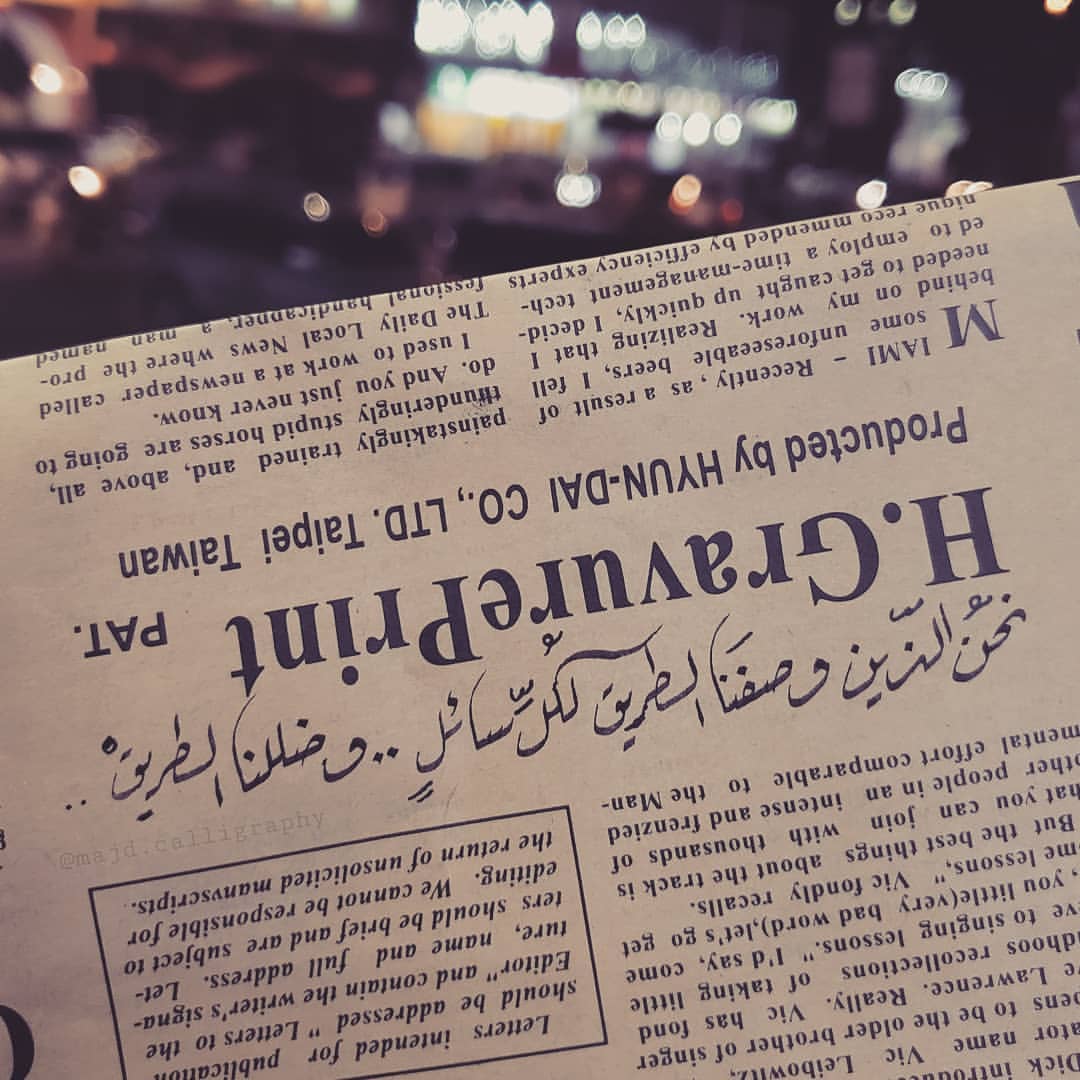 نَحْنُ الذّين وصفنَا الطريق لكُلّ سّائلٍ .. وضللنا الطريقْ ..
@majd.calligraphy
H.GravurePrint PAT.
Producted by HYUN-DAI CO., LTD. Taipei Taiwan
MIAMI – Recently, as a result of
some unforeseeable beers, I fell
behind on my work. Realizing that I
needed to get caught up quickly, I decid-
ed to employ a time-management tech-
nique reco mmended by efficiency experts
painstakingly trained and, above all,
thunderingly stupid horses are going to
do. And you just never know.
I used to work at a newspaper called
The Daily Local News where the pro-
fessional handicapper, a man named
Dick
name Vic Leibowitz,
pens to be the older brother of singer
Lawrence. Really. Vic has fond
recollections of taking little
to singing lessons." I'd say, come
, you little(very bad word),let's go get
lessons," Vic fondly recalls.
But the best things about the track is
that you can join with thousands of
other people in an intense and frenzied
mental effort comparable to the Man-
Letters intended for publication
should be addressed "Letters to the
Editor" and contain the writer's signa-
ture, name and full address. Let-
ters should be brief and are subject to
editing. We cannot be responsible for
the return of unsolicited manvscripts.